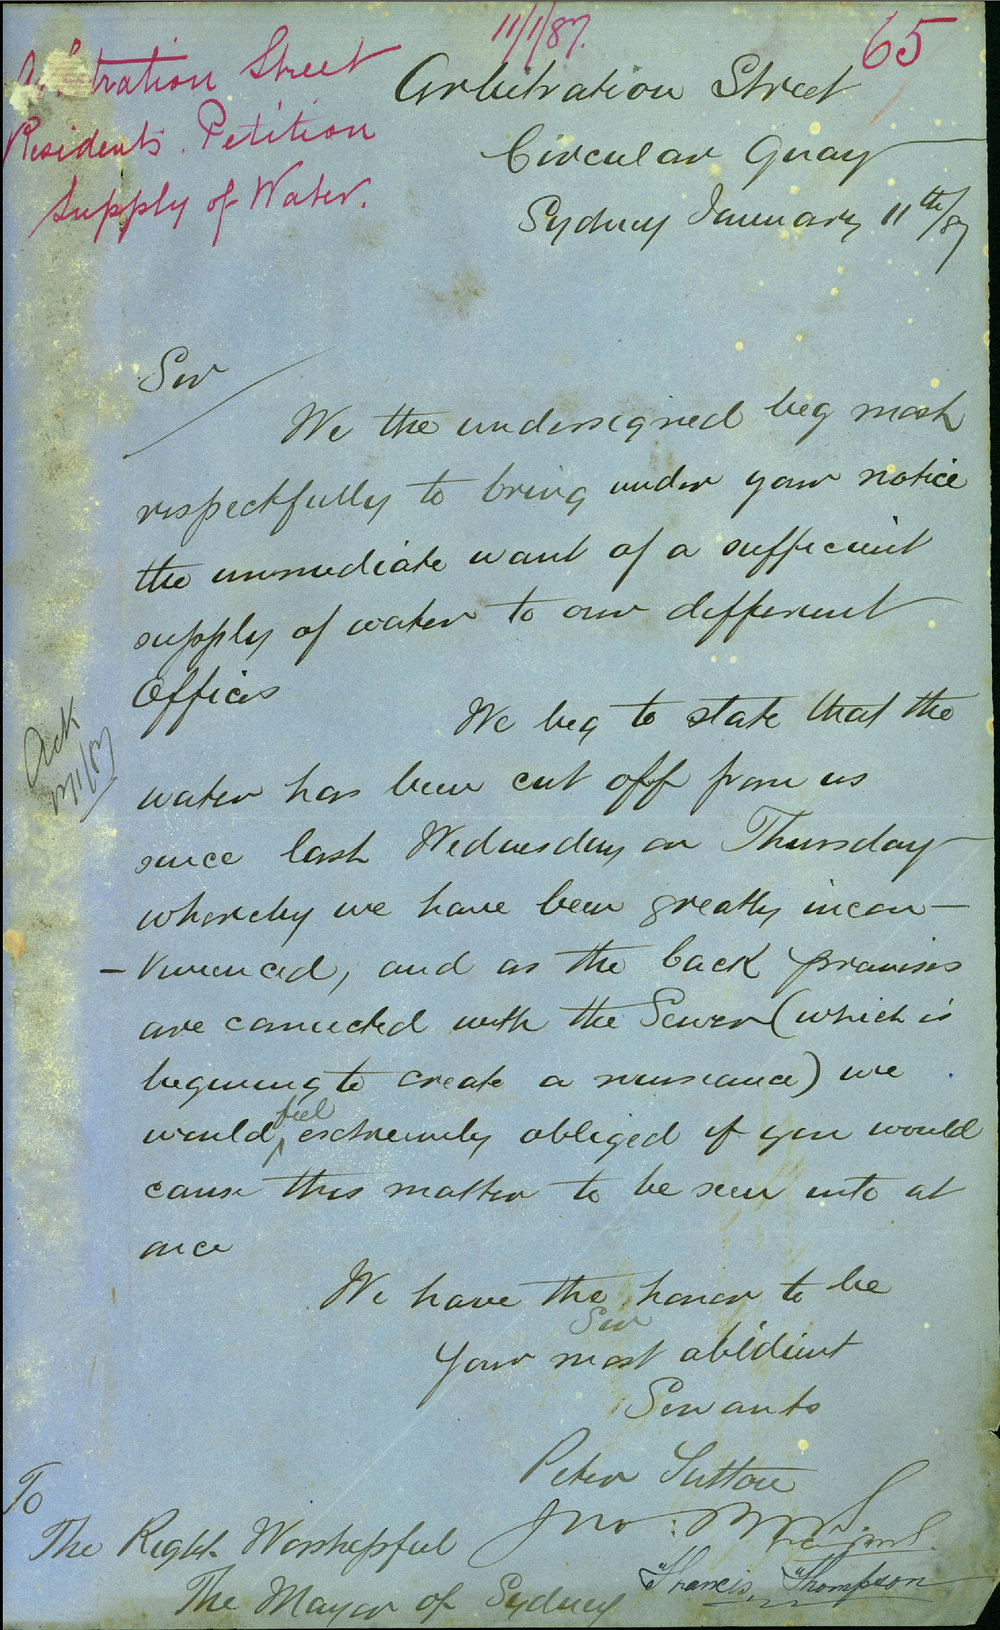 11/1/87.
65
Arbitration Street
Residents' Petition
Supply of Water.
Arbitration Street
Circular Quay
Sydney January 11th/87
Sir
We the undersigned beg most
respectfully to bring under your notice
the immediate want of a sufficient
supply of water to our different
Offices
We beg to state that the
water has been cut off from us
since last Wednesday or Thursday
whereby we have been greatly incon-
-venienced, and as the back premises
are connected with the Sewer (which is
begining to create a nuisance) we
would feel extremely obliged if you would
cause this matter to be seen into at
once
We have the honor to be
Sir
Your most obedient
Servants
Peter Sutton
Jno
Francis Thompson
To
The Right Worshipful
The Mayor of Sydney
Ack